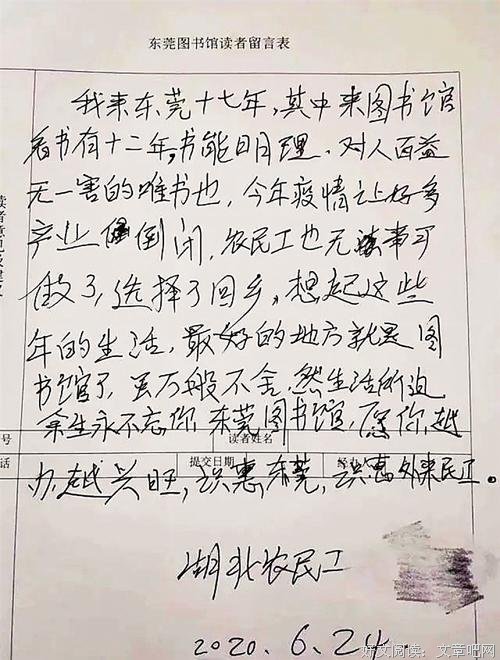 东莞图书馆读者留言表
我来东莞十七年,其中来图书馆
看书有十二年,书能明理、对人百益
无一害的唯书也,今年疫情让好多
产业倒闭,农民工也无事可
做了,选择了回乡,想起这些
年的生活,最好的地方就是图
书馆了,虽万般不舍,然生活所迫
余生永不忘你,东莞图书馆,愿你越
号 读者姓名
办越兴旺,识惠东莞,识惠外来民工。
话 提交日期
湖北农民工
2020.6.24.
好文阅读:文章吧网